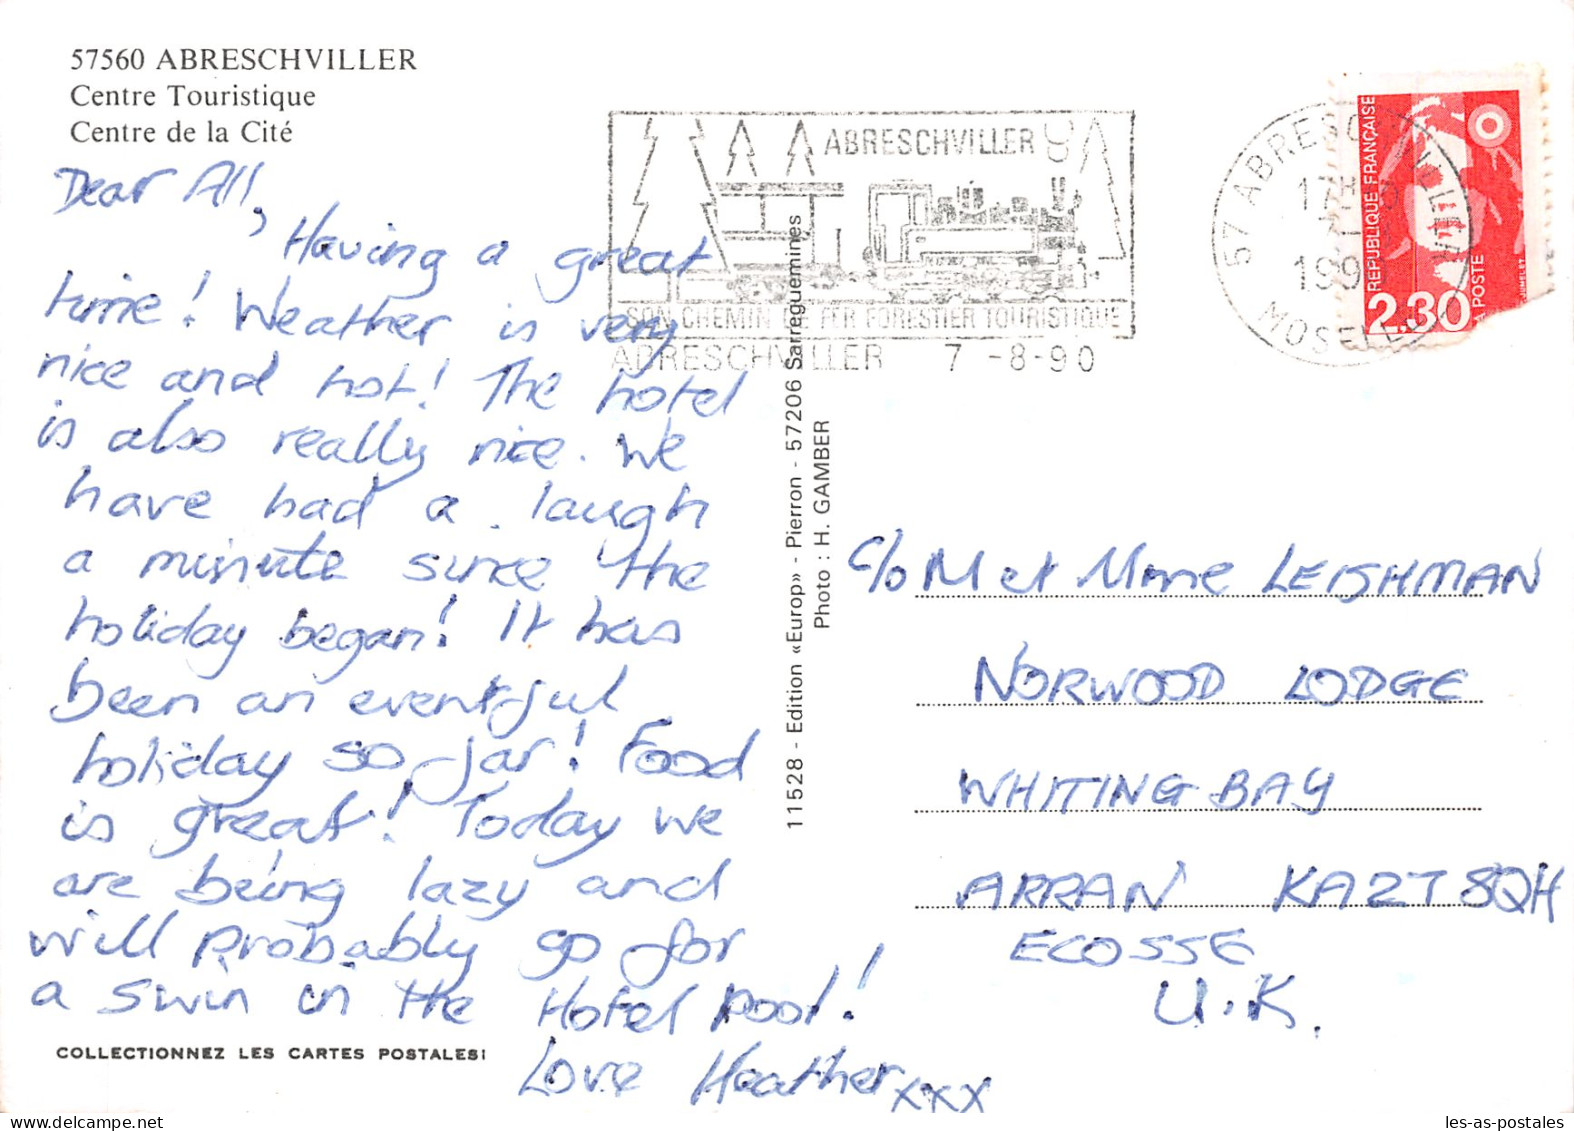 57560 ABRESCHVILLER
Centre Touristique
Centre de la Cité
Dear All,
Having a great
time! Weather is very
nice and hot! The hotel
is also really nice. We
have had a laugh
a minute since the
holiday began! It has
been an eventful
holiday so far! Food
is great! Today we
are being lazy and
will probably go for
a swim in the Hotel pool!
Love Heather xxx
COLLECTIONNEZ LES CARTES POSTALES!
11528 - Edition «Europ» - Pierron - 57206 Sarreguemines
Photo : H. GAMBER
ABRESCHVILLER
SON CHEMIN DE FER FORESTIER TOURISTIQUE
ABRESCHVILLER 7 -8-90
57 ABRESCHVILLER
17H
199
MOSELLE
REPUBLIQUE FRANÇAISE
2,30
LA POSTE
JUMELET
c/o M et Mme LEISHMAN
NORWOOD LODGE
WHITING BAY
ARRAN KA27 8QH
ECOSSE
U.K.
les-as-postales